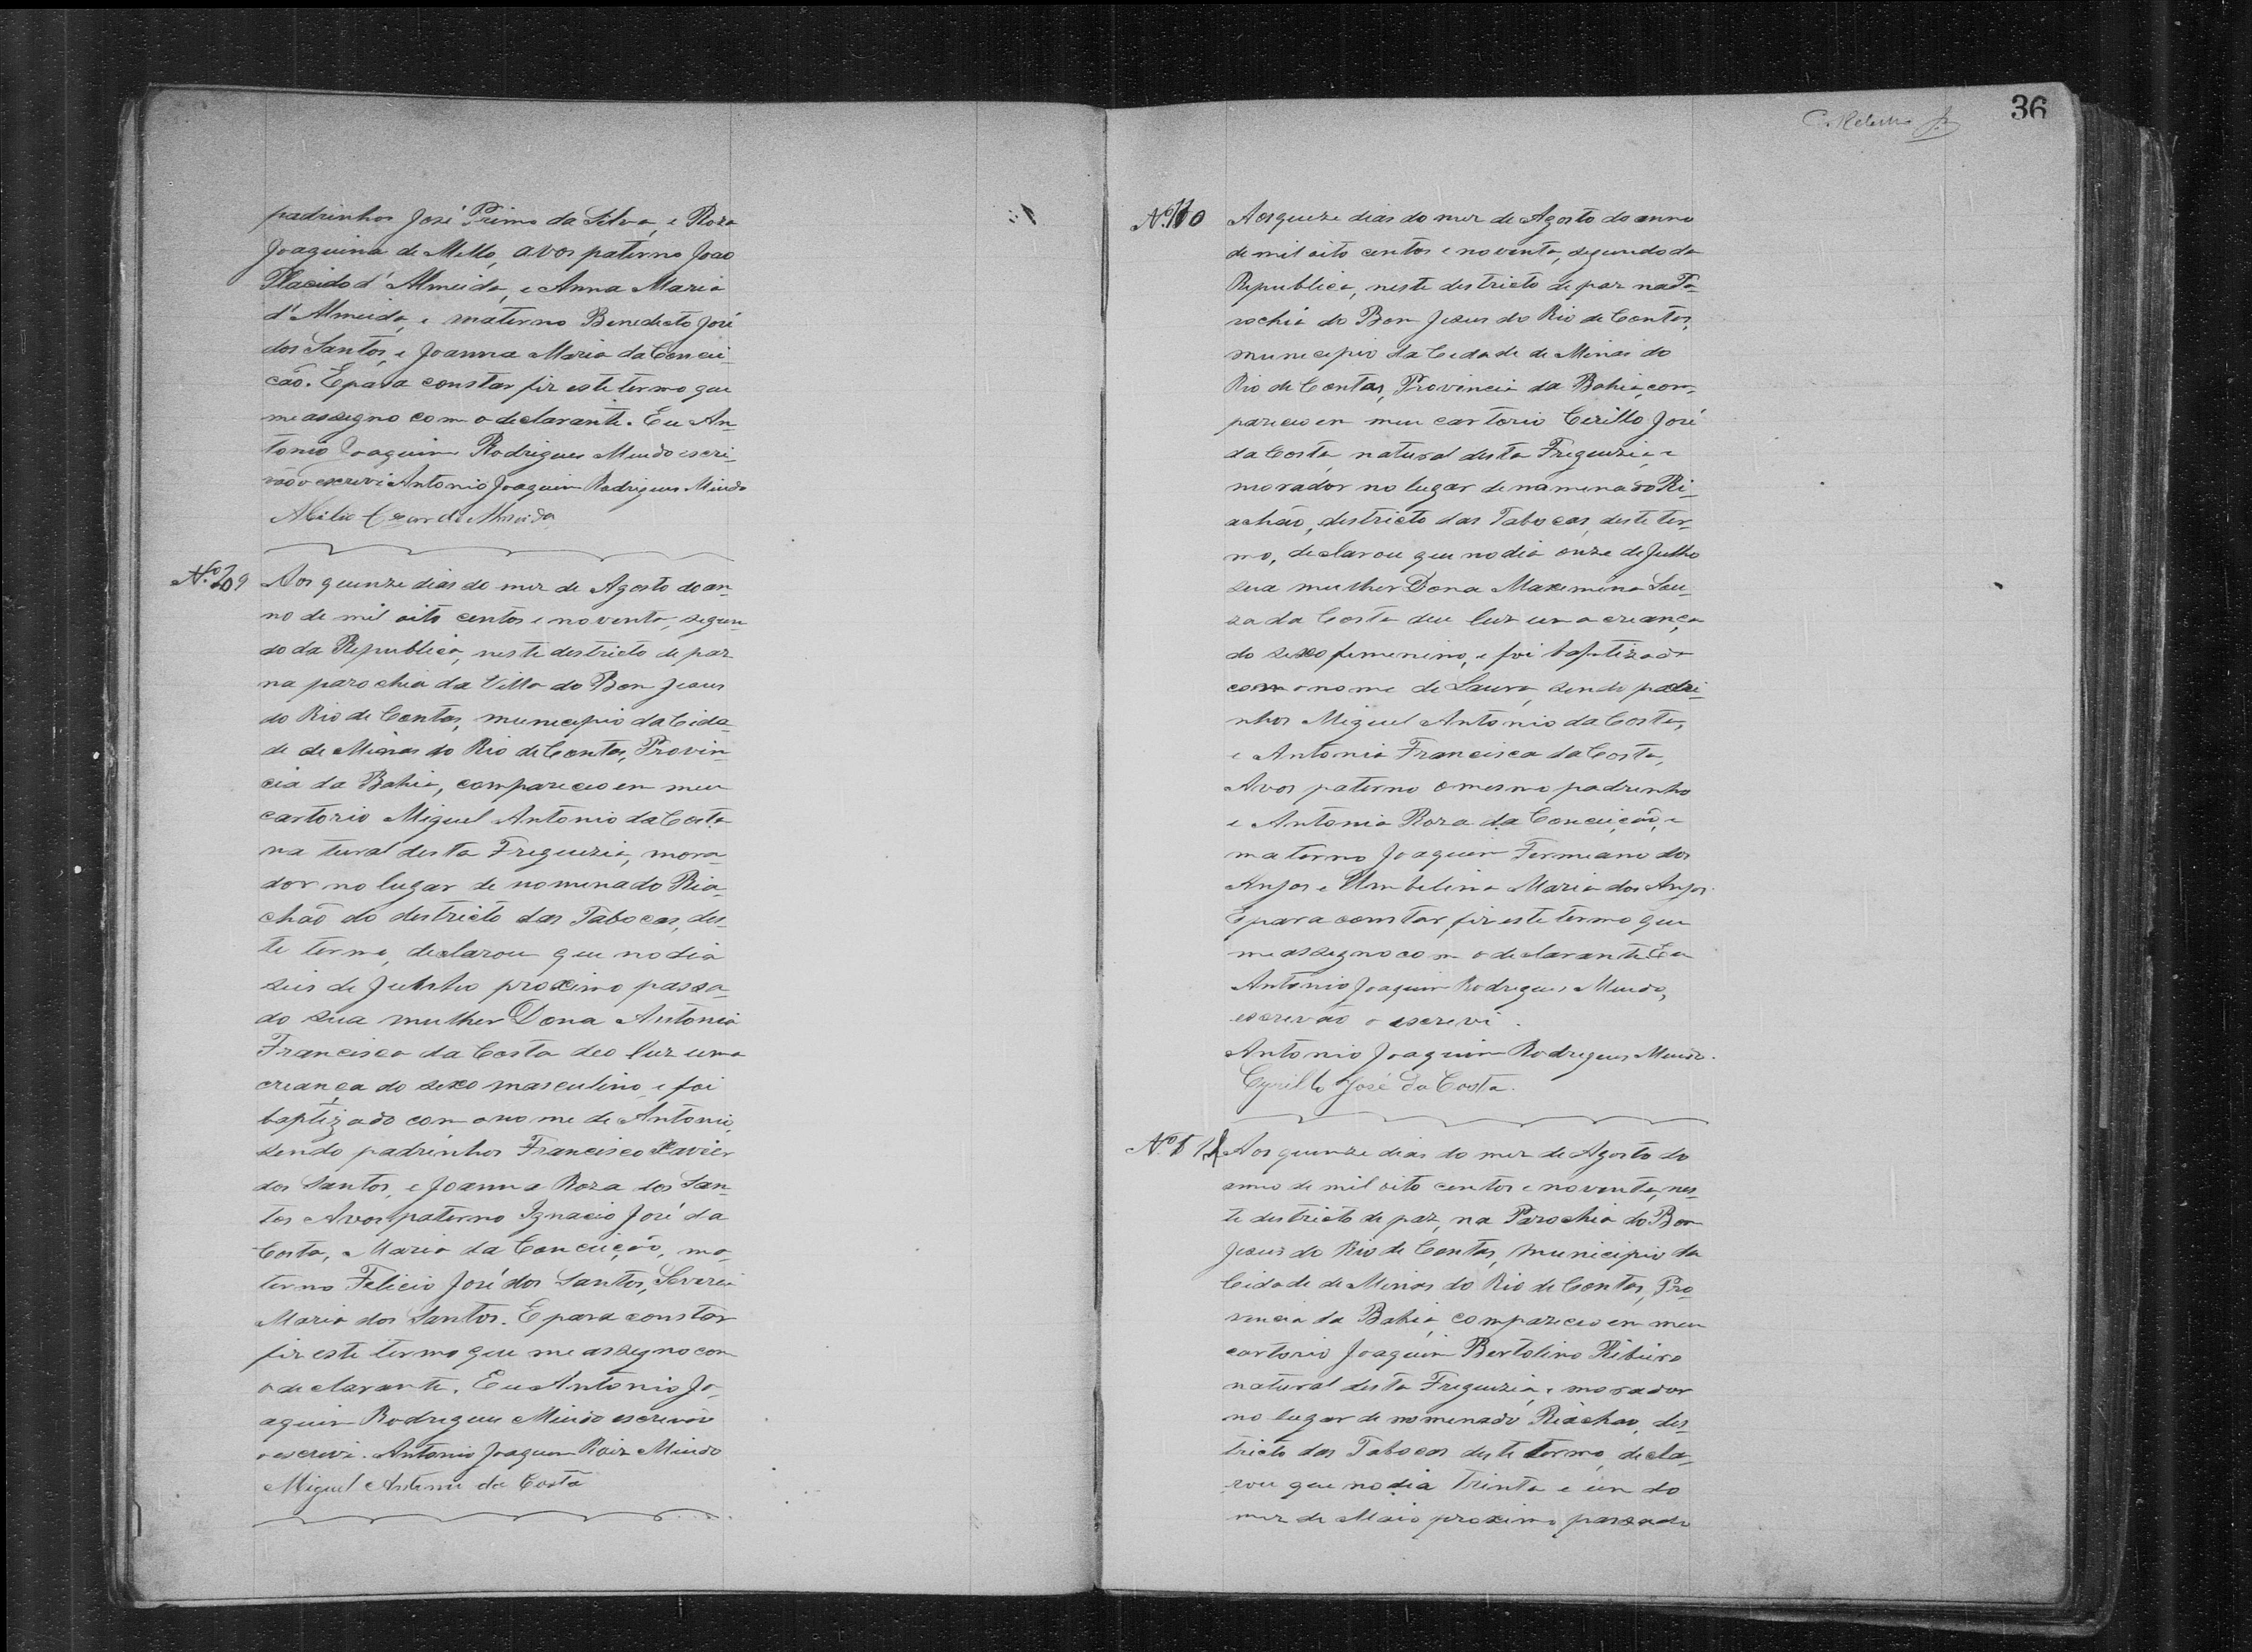 padrinhos José Primo da Silva, e Roza
Joaquina de Mello, avos paterno João
Placido d'Almeida, e Anna Maria
d'Almeida, e materno Benedicto José
dos Santos, e Joanna Maria da Concei-
ção. E para constar fiz este termo que
me assegno com o declarante. Eu An-
tonio Joaquim Rodrigues Miudo escri-
vão o escrevi Antonio Joaquim Rodrigues Miudo
Abilio Cezar de Almeida
N.º 109
Aos quinze dias do mez de Agosto do an-
no de mil oito centos e noventa, segun-
do da Republica, neste districto de paz
na parochia da Villa do Bom Jesus
do Rio de Contas, municipio da Cida-
de de Minas do Rio de Contas, Provin-
cia da Bahia, compareceo em meu
cartorio Miguel Antonio da Costa
natural desta Freguezia, mora-
dor no lugar denominado Ria-
chão do districto das Tabocas, des-
te termo, declarou que no dia
seis de Julho proximo passa-
do sua mulher Dona Antonia
Francisca da Costa deo luz uma
creança do sexo masculino, e foi
baptizado com o nome de Antonio,
sendo padrinhos Francisco Xavier
dos Santos, e Joanna Roza dos San-
tos Avos paterno Ignacio José da
Costa, e Maria da Conceição, ma-
terno Felicio José dos Santos,
Maria dos Santos. E para constar
fiz este termo que me assegno com
o declarante. Eu Antonio Jo-
aquim Rodrigues Miudo escrivão
o escrevi. Antonio Joaquim Roiz Miudo
Miguel Antonio da Costa
36
N.º 110
Aos quize dias do mez de Agosto do anno
de mil oito centos e noventa, segundo da
Republica, neste destricto de paz na Pa-
rochia do Bom Jesus do Rio de Contas,
municipio da Cidade de Minas do
Rio de Contas, Provincia da Bahia, com-
pareceo em meu cartorio Cirillo José
da Costa, natural desta Freguezia, e
morador no lugar denaminado Ri-
achão, destricto das Tabocas, deste ter-
mo, declarou que no dia onze de Julho
sua mulher Dona Maximina Sou-
za da Costa deu luz uma creança
do sexo femenino, e foi baptizada
com o nome de Laura, sendo padri-
nhos Miguel Antonio da Costa,
e Antonia Francisca da Costa,
Avos paterno o mesmo padrinho
e Antonia Roza da Conceição, e
materno Joaquim Fermeano dos
Anjos e Umbelina Maria dos Anjos.
E para constar fiz este termo que
me assegno com o declarante. Eu
Antonio Joaquim Rodrigues Miudo,
escrivão o escrevi.
Antonio Joaquim Rodrigues Miudo.
Cyrillo José da Costa.
N.º 111
Aos quinze dias do mez de Agosto do
anno de mil oito centos e noventa, nes-
te destricto de paz, na Parochia do Bom
Jesus do Rio de Contas, municipio da
Cidade de Minas do Rio de Contas, Pro-
vincia da Bahia, compareceo em meu
cartorio Joaquim Bertolino Ribeiro
natural desta Freguezia, e morador
no lugar denomenado Riachao, des-
tricto das Tabocas deste termo, decla-
rou que no dia trinta e um do
mez de Maio proximo passado